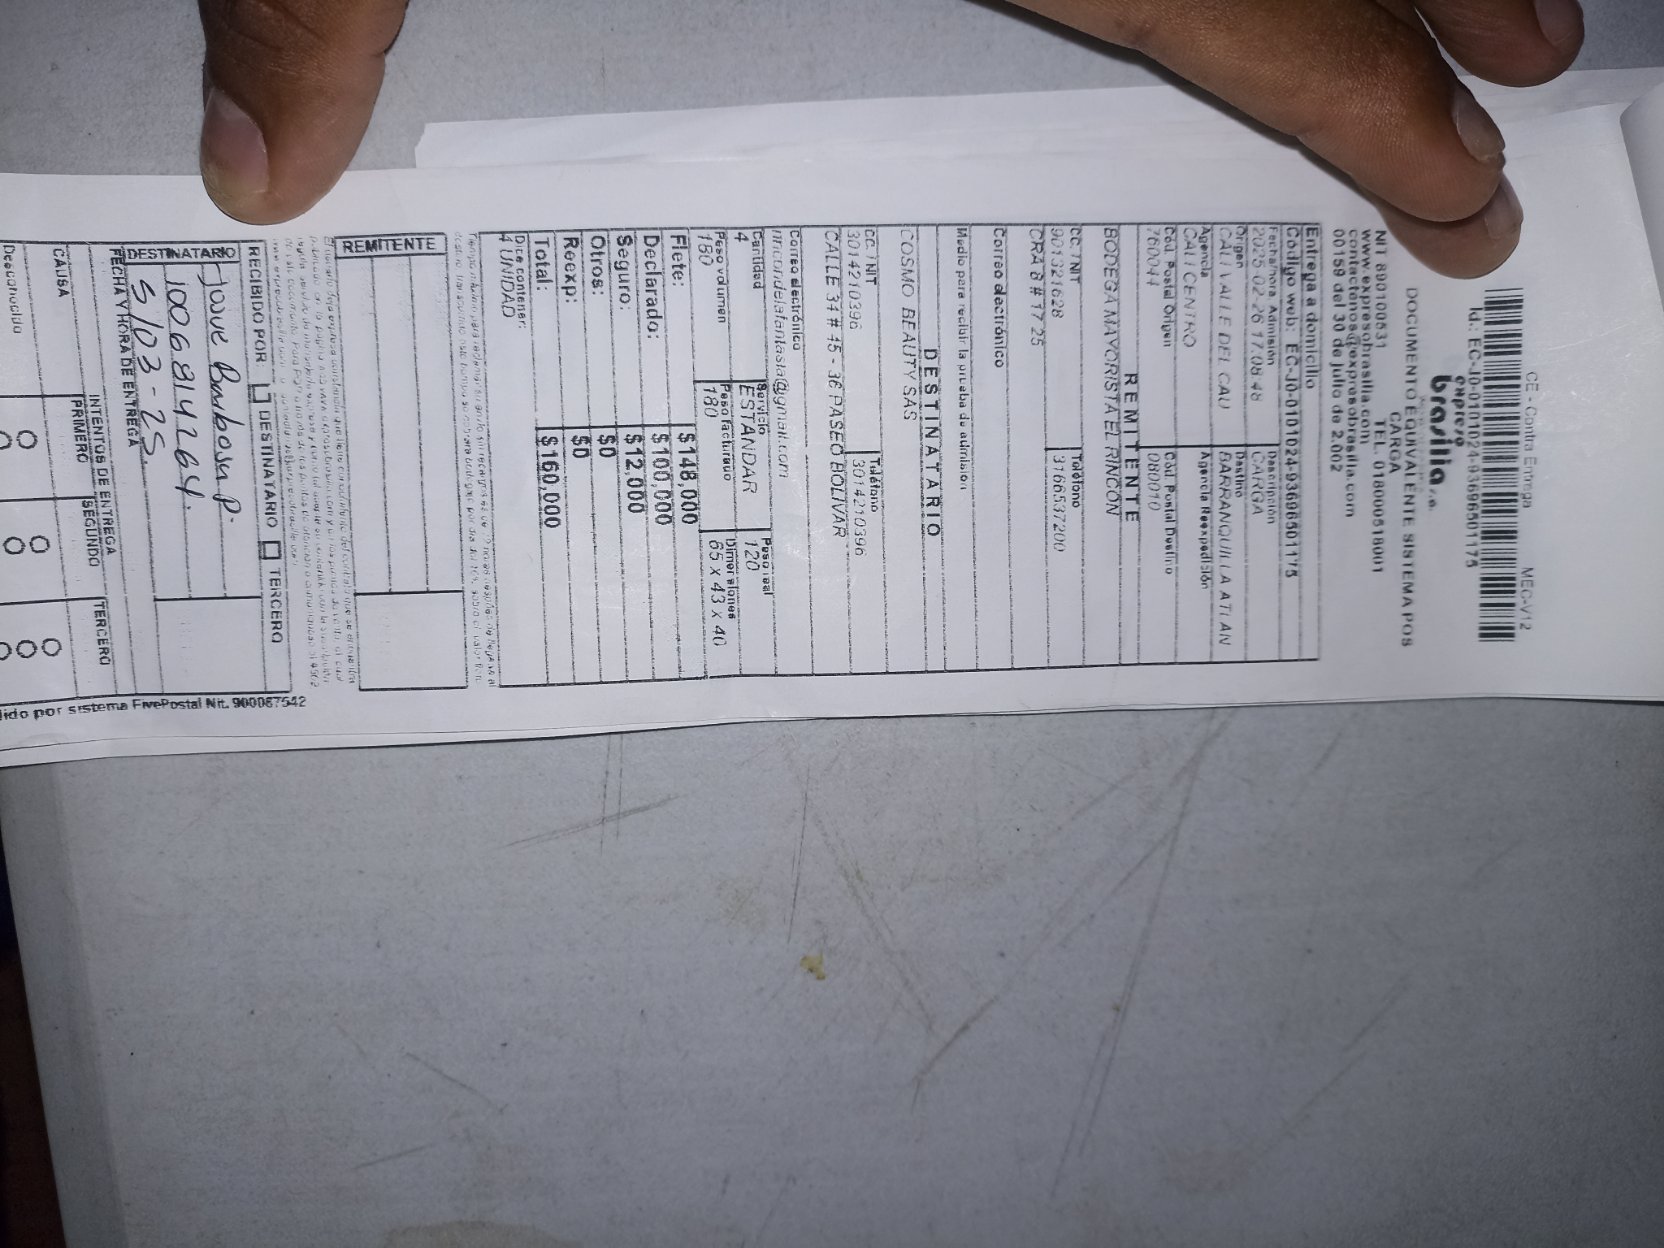 CE - Contra Entrega MEC-V12
Id.: EC-J0-0101024-9369650117​5
expreso
brasilia s.a.
DOCUMENTO EQUIVALENTE SISTEMA POS
CARGA
NIT 890100531 TEL. 018000518001
www.expresobrasilia.com
contactenos@expresobrasilia.com
00159 del 30 de julio de 2.002
Entrega a domicilio
Código web: EC-J0-0101024-93696501175
Fecha/hora Admisión Descripción
2025-02-26 17:08:48 CARGA
Origen Destino
CALI VALLE DEL CAU BARRANQUILLA ATLAN
Agencia Agencia Reexpedición
CALI CENTRO
Cód. Postal Origen Cód. Postal Destino
760044 080010
REMITENTE
BODEGA MAYORISTA EL RINCON
CC. / NIT Teléfono
901321628 3166537200
CRA 8 # 17 25
Correo electrónico
Medio para recibir la prueba de admisión
DESTINATARIO
COSMO BEAUTY SAS
CC. / NIT Teléfono
3014210396 3014210396
CALLE 34 # 45 - 36 PASEO BOLIVAR
Correo electrónico
rincondelafantasia@gmail.com
Cantidad Servicio Peso real
4 ESTANDAR 120
Peso volumen Peso facturado Dimensiones
180 180 65 x 43 x 40
Flete: $148,000
Declarado: $100,000
Seguro: $12,000
Otros: $0
Reexp: $0
Total: $160,000
Dice contener:
4 UNIDAD
REMITENTE
RECIBIDO POR: DESTINATARIO TERCERO
DESTINATARIO
Barbosa P.
1006814264.
5/03-25.
FECHA Y HORA DE ENTREGA
INTENTOS DE ENTREGA
CAUSA PRIMERO SEGUNDO TERCERO
Desconocido
dido por sistema FivePostal Nit. 900087542